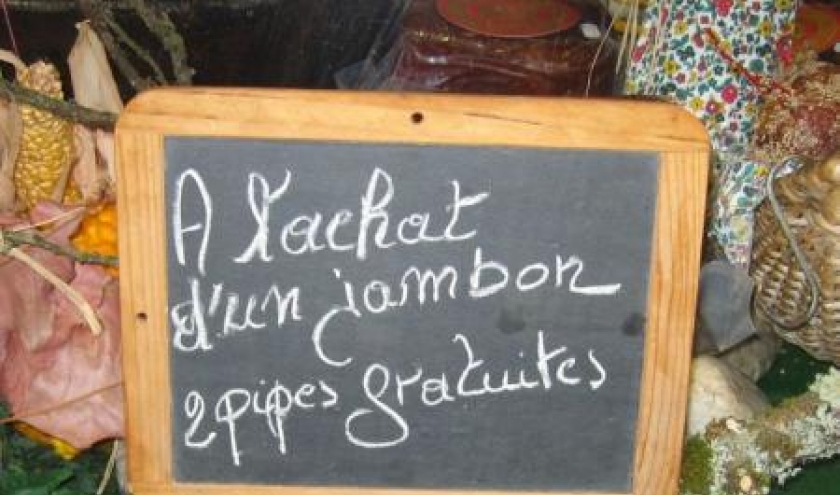 A l'achat
d'un jambon
2 pipes gratuites